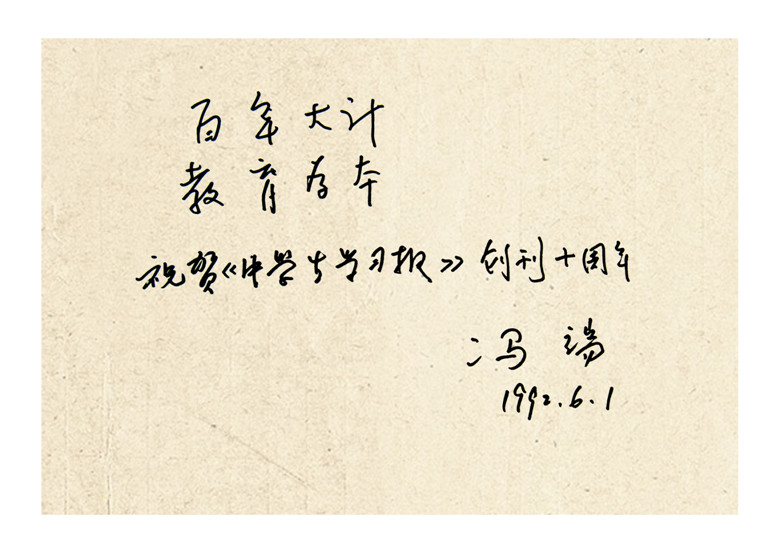 百年大计
教育为本
祝贺《中学生学习报》创刊十周年
冯端
1992.6.1